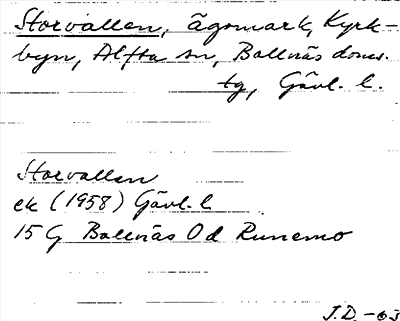 Storvallen, ägomark, Kyrk-
byn, Alfta sn, Bollnäs doms.
tg, Gävl. l.
Storvallen
ek (1958) Gävl. l
15 G Bollnäs 0d Runemo
J.D. -63